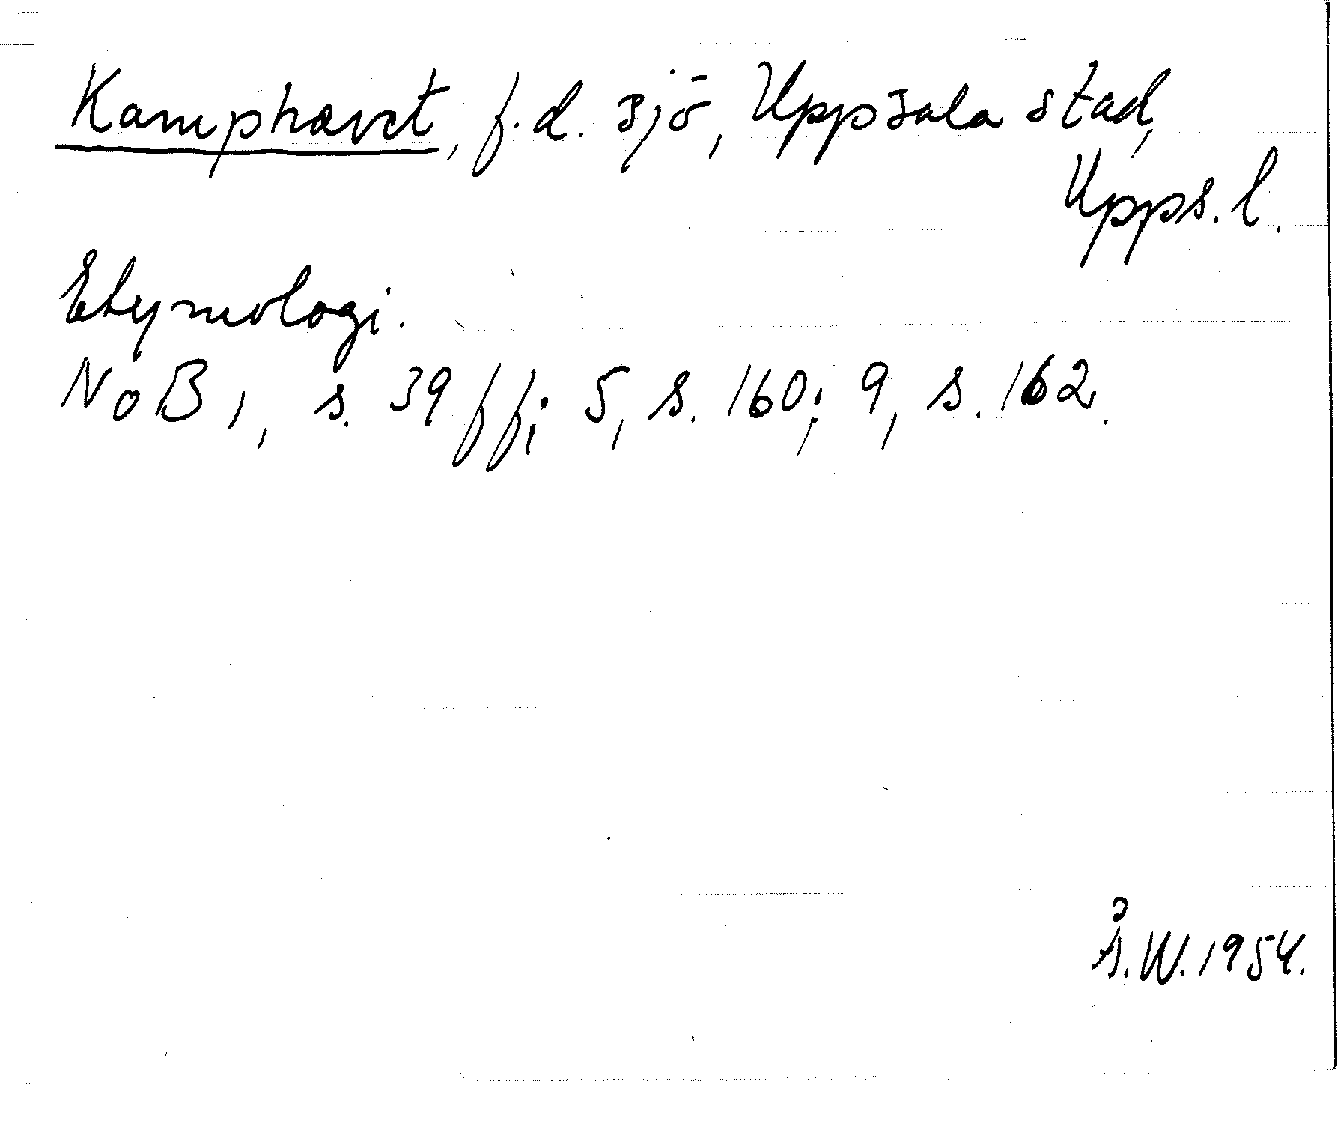 Kamphavet, f.d. sjö, Uppsala stad,
Upps. l.
Etymologi.
NoB 1, s. 39 ff; 5, s. 160; 9, s. 162.
Å.W. 1954.